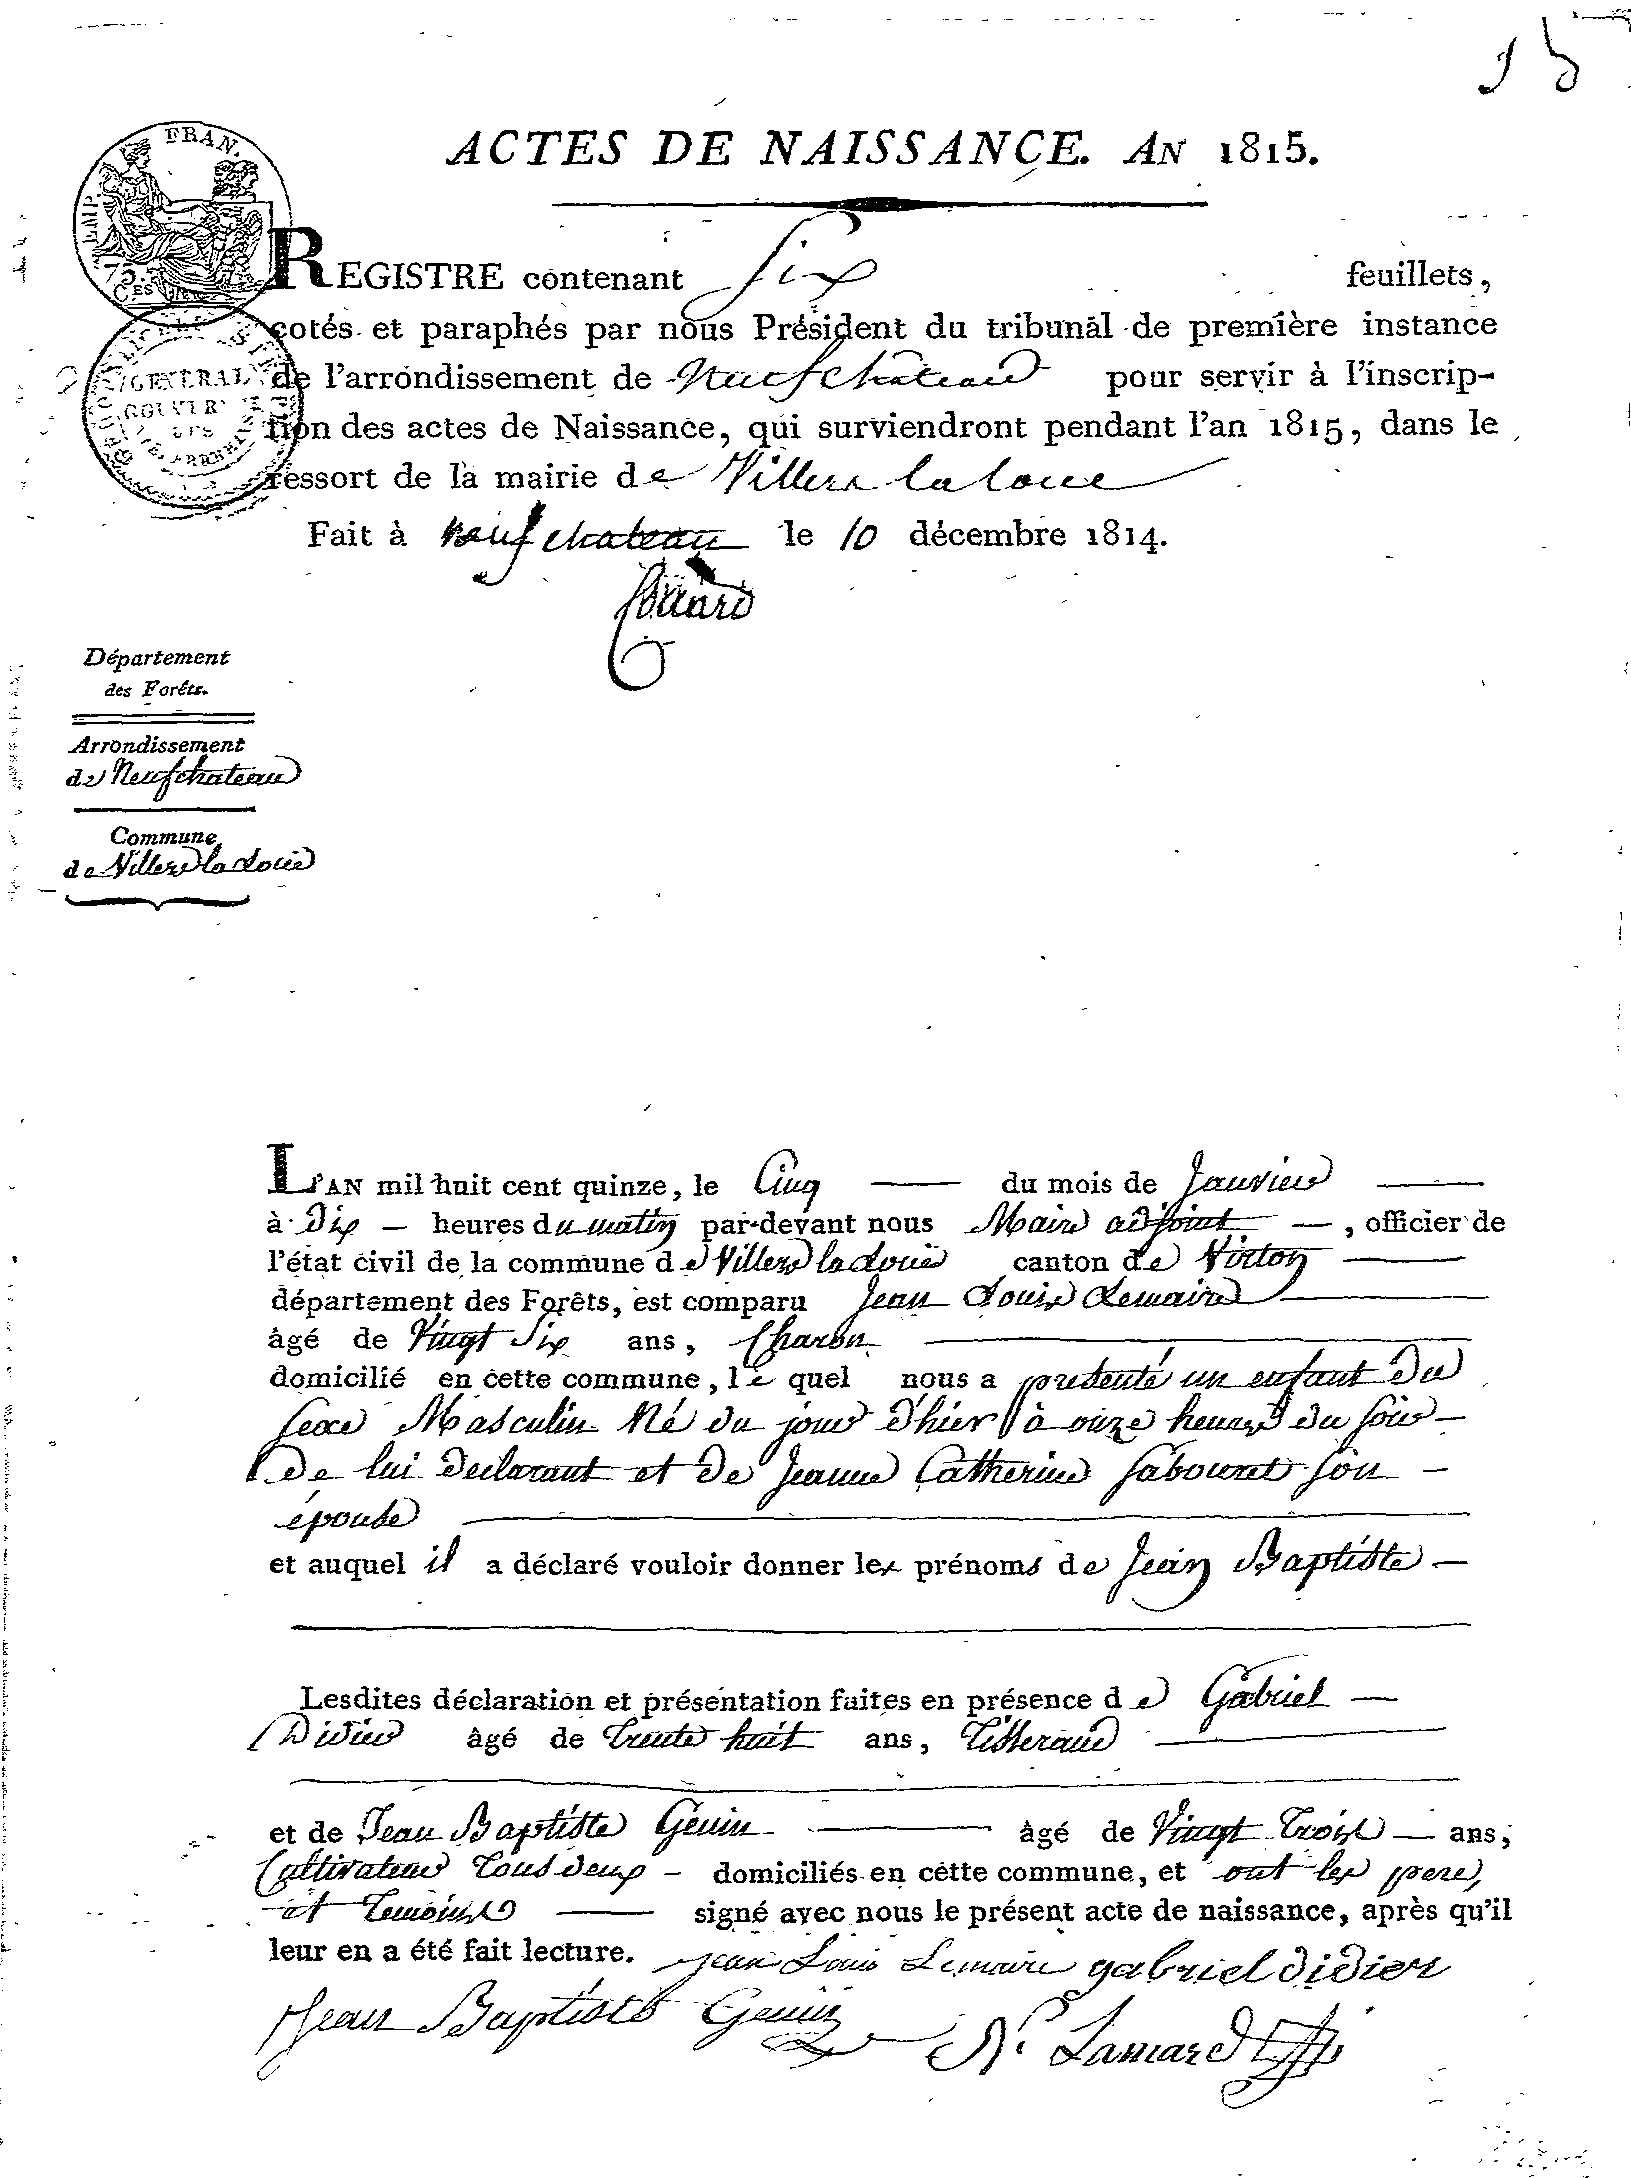 15
ACTES DE NAISSANCE. AN 1815.
EMP. FRAN.
75.
CES
REGISTRE contenant Six feuillets,
cotés et paraphés par nous Président du tribunal de première instance
de l'arrondissement de Neufchateau pour servir à l'inscrip-
tion des actes de Naissance, qui surviendront pendant l'an 1815, dans le
ressort de la mairie de Villers la loue
Fait à neufchateau le 10 décembre 1814.
GENERAL
GOUVER
Département
des Forêts.
Arrondissement
de Neufchateau
Commune
de Villers la Loue
L'AN mil huit cent quinze, le Cinq du mois de Janvier
à Dix heures du matin par-devant nous Maire adjoint, officier de
l'état civil de la commune de Villers la Loue canton de Virton
département des Forêts, est comparu Jean Louis Lemaire
âgé de Vingt Six ans, Charon
domicilié en cette commune, le quel nous a presenté un enfant du
sexe Masculin Né du jour d'hier à onze heures du soir
de lui declarant et de Jeanne Catherine Sabouret son
épouse
et auquel il a déclaré vouloir donner les prénoms de Jean Baptiste
Lesdites déclaration et présentation faites en présence de Gabriel
Didier âgé de trente huit ans, Tisserand
et de Jean Baptiste Genin âgé de Vingt Trois ans,
Cultivateur tous deux domiciliés en cette commune, et ont les pere,
et temoins signé avec nous le présent acte de naissance, après qu'il
leur en a été fait lecture. jean Louis Lemaire gabriel didier
Jean Baptiste Genin Lamard